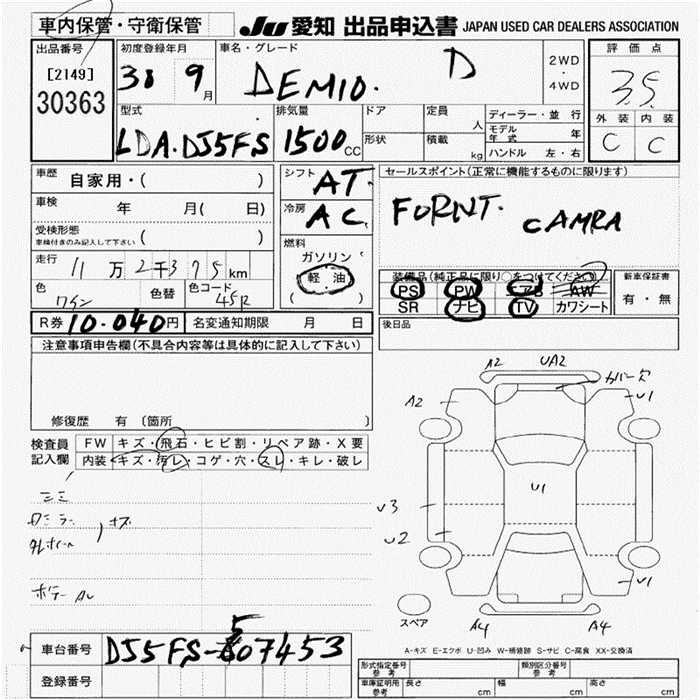 車内保管・守衛保管 JU 愛知 出品申込書 JAPAN USED CAR DEALERS ASSOCIATION
出品番号 初度登録年月 車名・グレード 2WD・4WD 評価点
[2149] 30 9月 DEMIO. D 3.5
30363
型式 排気量 ドア 定員 人 ディーラー・並行 外装 内装
LDA.DJ5FS 1500CC 形状 積載 kg モデル年式 年 C C
ハンドル 左・右
車歴 自家用・( ) シフト AT セールスポイント(正常に機能するものに限ります)
車検 年 月( 日) 冷房 AC FORNT. CAMRA
受検形態 ( )
車検付きのみ記入して下さい
燃料 ガソリン
走行 11万2千375km 軽油 装備品(純正品に限り○をつけてください) 新車保証書
色 ワイン 色替 色コード 45R ( ) PS PW エアB AW 有・無
SR ナビ TV カワシート
R券 10.040円 名変通知期限 月 日 後日品
注意事項申告欄(不具合内容等は具体的に記入して下さい)
修復歴 有 〔箇所 〕
検査員 FW キズ・飛石・ヒビ割・リペア跡・X要
記入欄 内装 キズ・汚レ・コゲ・穴・スレ・キレ・破レ
A2 UA2 カバー欠
A2 U1
U1
U3
U2
U1
スペア A4 A4
A-キズ E-エクボ U-凹み W-補修跡 S-サビ C-腐食 XX-交換済
車台番号 DJ5FS-507453
登録番号
形式指定番号 参考 類別区分番号 参考
車庫証明用 参考 長さ cm 幅 cm 高さ cm